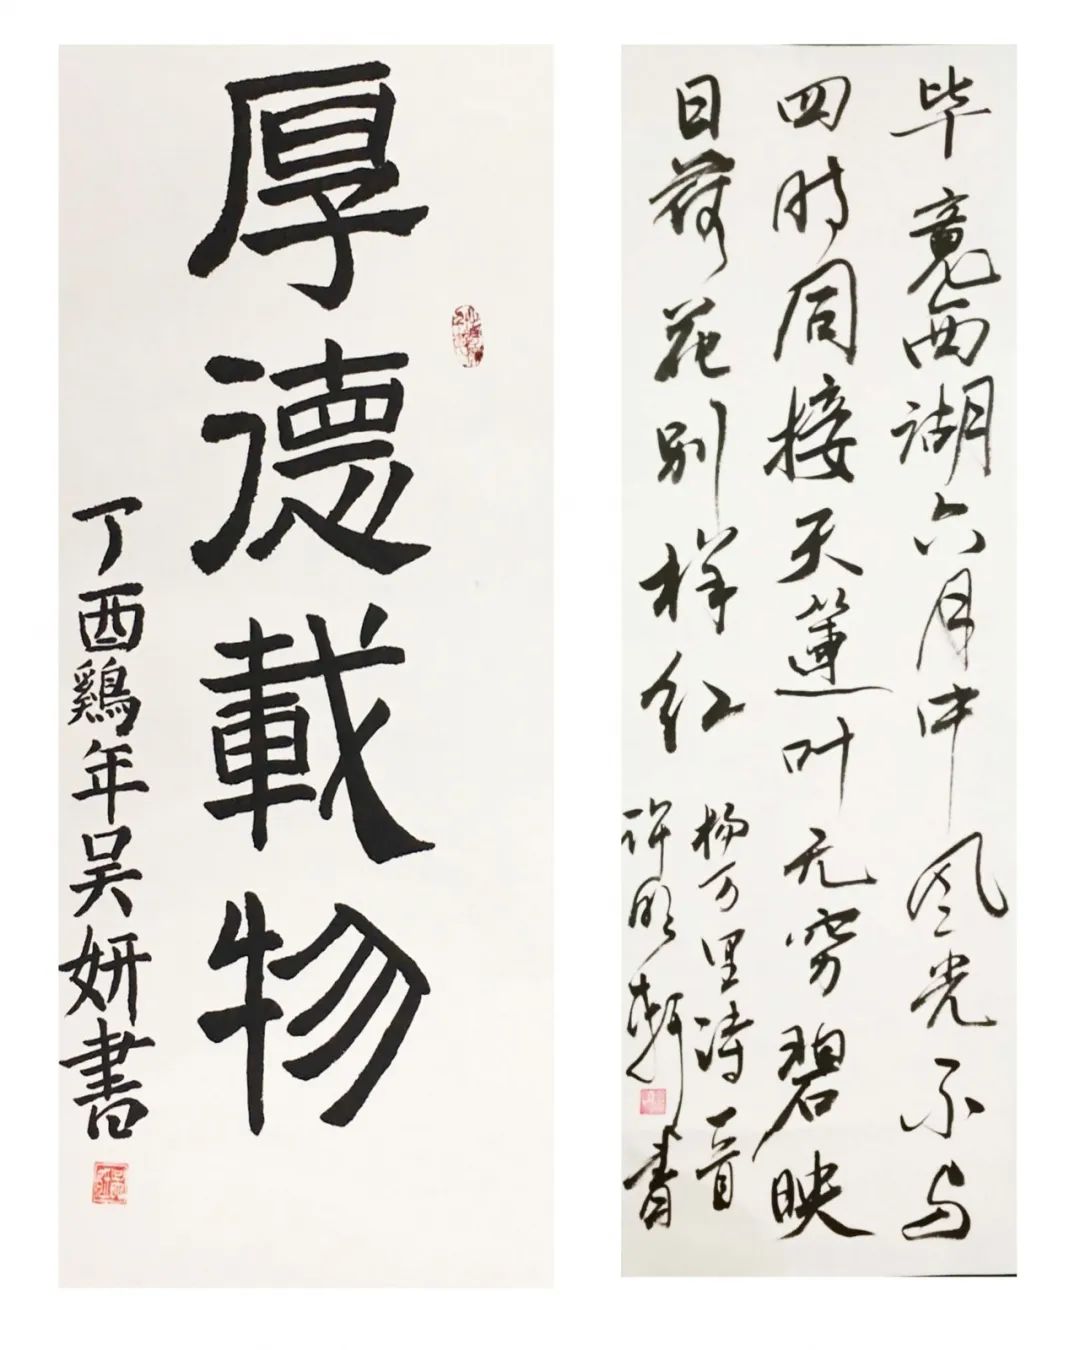 厚德載物
丁酉鷄年吴妍書
毕竟西湖六月中风光不与
四时同接天蓮叶无穷碧映
日荷花别样红
杨万里诗一首
许 轩書